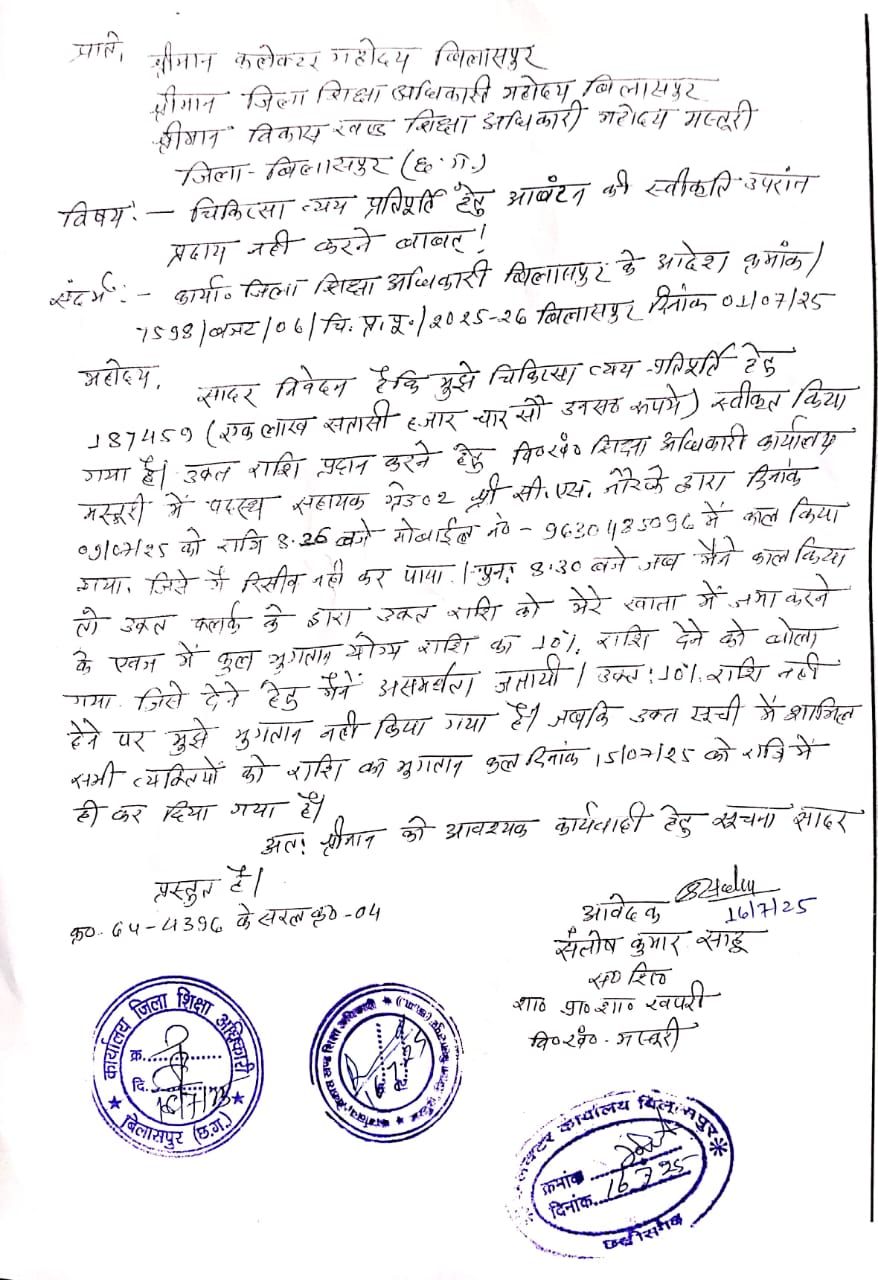 प्रति,
श्रीमान कलेक्टर महोदय बिलासपुर
श्रीमान जिला शिक्षा अधिकारी महोदय बिलासपुर
श्रीमान विकास खण्ड शिक्षा अधिकारी महोदय मस्तूरी
जिला- बिलासपुर (छ.ग.)
विषय:- चिकित्सा व्यय प्रतिपूर्ति हेतु आबंटन की स्वीकृति उपरांत
प्रदाय नही करने बाबत्!
संदर्भ:- कार्या. जिला शिक्षा अधिकारी बिलासपुर के आदेश क्रमांक/
7598/बजट/06/चि. प्र. पू./2025-26 बिलासपुर दिनांक 01/07/25
महोदय,
सादर निवेदन है कि मुझे चिकित्सा व्यय प्रतिपूर्ति हेतु
187459 (एक लाख सतासी हजार चार सौ उनसठ रूपये) स्वीकृत किया
गया है। उक्त राशि प्रदान करने हेतु वि०खं० शिक्षा अधिकारी कार्यालय
मस्तूरी में पदस्थ सहायक ग्रेड०2 श्री सी. एस. नौरके द्वारा दिनांक
09/07/25 को रात्रि 8.26 बजे मोबाईल नं० - 9630485096 में काल किया
गया, जिसे मैं रिसीव नही कर पाया। पुनः 8:30 बजे जब मैने काल किया
तो उक्त क्लर्क के द्वारा उक्त राशि को मेरे खाता में जमा करने
के एवज में कुल भुगतान योग्य राशि का 10%, राशि देने को बोला
गया जिसे देने हेतु मैनें असमर्थता जतायी। उक्त 10% राशि नही
देने पर मुझे भुगतान नही किया गया है। जबकि उक्त सूची में शामिल
सभी व्यक्तियों को राशि का भुगतान कल दिनांक 15/07/25 को रात्रि में
ही कर दिया गया है।
अतः श्रीमान को आवश्यक कार्यवाही हेतु सूचना सादर
प्रस्तुत है।
क्र० 64-4396 के सरल क्र०-04
आवेदक
16/7/25
संतोष कुमार साहू
स० शि०
शा० प्रा० शा० खपरी
वि०खं०- मस्तूरी
कार्यालय जिला शिक्षा अधिकारी
क्र.
दि. 16/7/25
बिलासपुर (छ.ग.)
कलेक्टर कार्यालय बिलासपुर
क्रमांक
दिनांक 16.7.25
छत्तीसगढ़